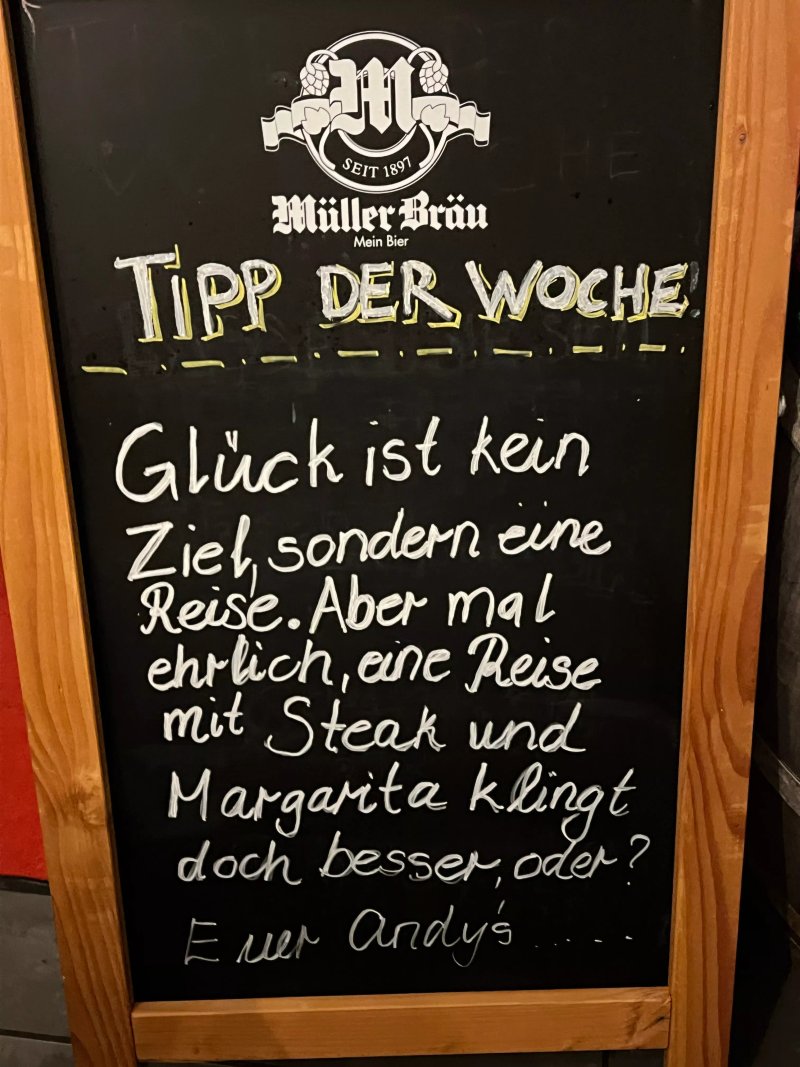 M
SEIT 1897
Müller Bräu
Mein Bier
TIPP DER WOCHE!
Glück ist kein
Ziel, sondern eine
Reise. Aber mal
ehrlich, eine Reise
mit Steak und
Margarita klingt
doch besser, oder?
Euer Andy's.....